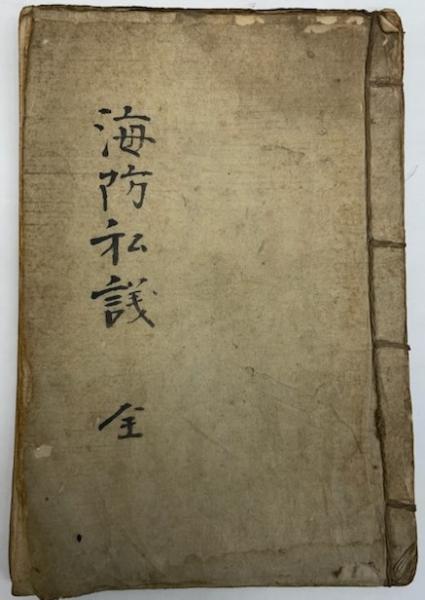 海防私議 全